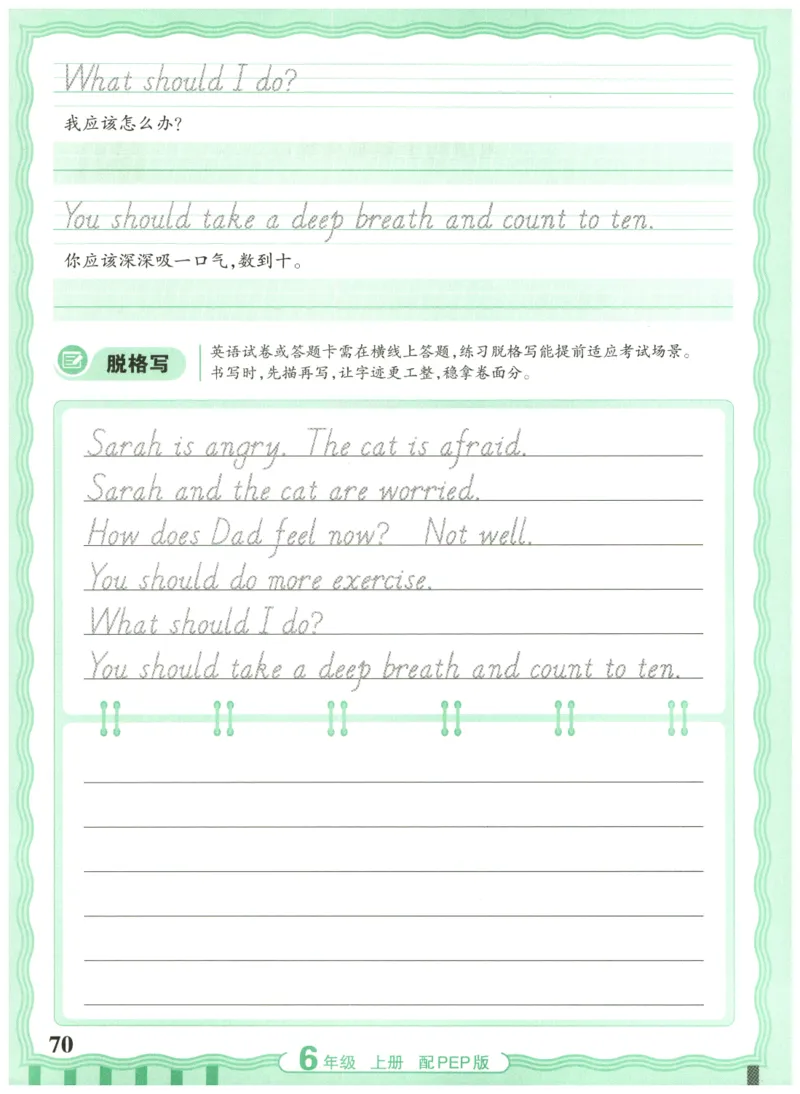 What should I do?
我应该怎么办?
You should take a deep breath and count to ten.
你应该深深吸一口气,数到十。
脱格写
英语试卷或答题卡需在横线上答题,练习脱格写能提前适应考试场景。
书写时,先描再写,让字迹更工整,稳拿卷面分。
Sarah is angry. The cat is afraid.
Sarah and the cat are worried.
How does Dad feel now? Not well.
You should do more exercise.
What should I do?
You should take a deep breath and count to ten.
70
6年级 上册 配PEP版